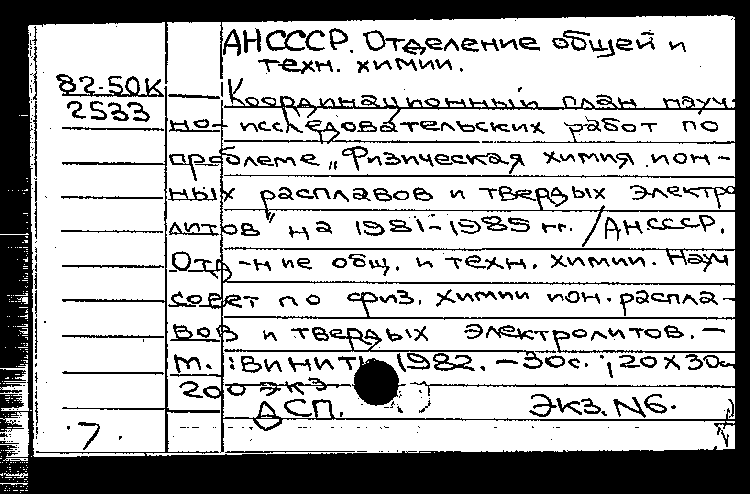 АН СССР. Отделение общей и
техн. химии.
82-50К
2533
Координационный план науч-
но-исследовательских работ по
проблеме „Физическая химия ион-
ных расплавов и твердых электро
литов" на 1981-1985 гг. / АН СССР.
Отд-ние общ. и техн. химии. Науч
совет по физ. химии ион. распла-
вов и твердых электролитов. —
М. : ВИНИТИ, 1982. — 30с. ; 20X30см
200 экз
ДСП. Экз. N6.
7.